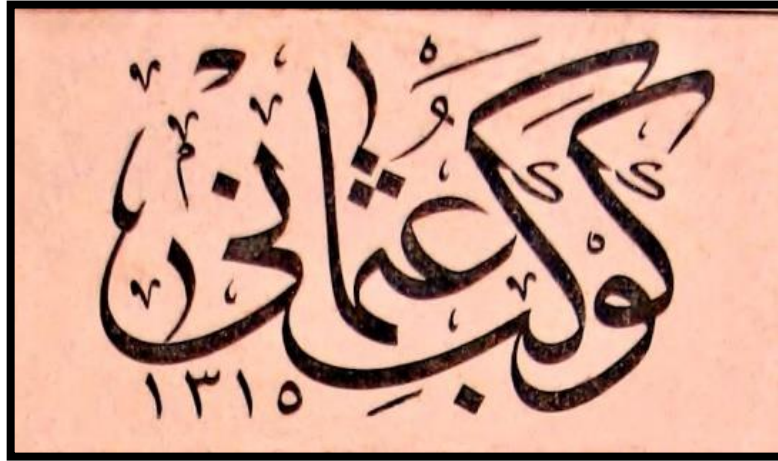 كَوْكَبِ عُثْمَانِى
١٣١٥